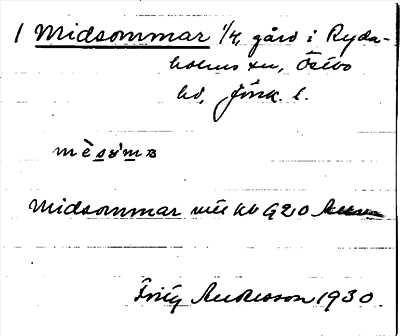 1 Midsommar 1/4, gård i Ryda-
holms sn, Östbo
hd, Jönk. l.
mèsým
Midsommar
Fritz Andersson 1930.